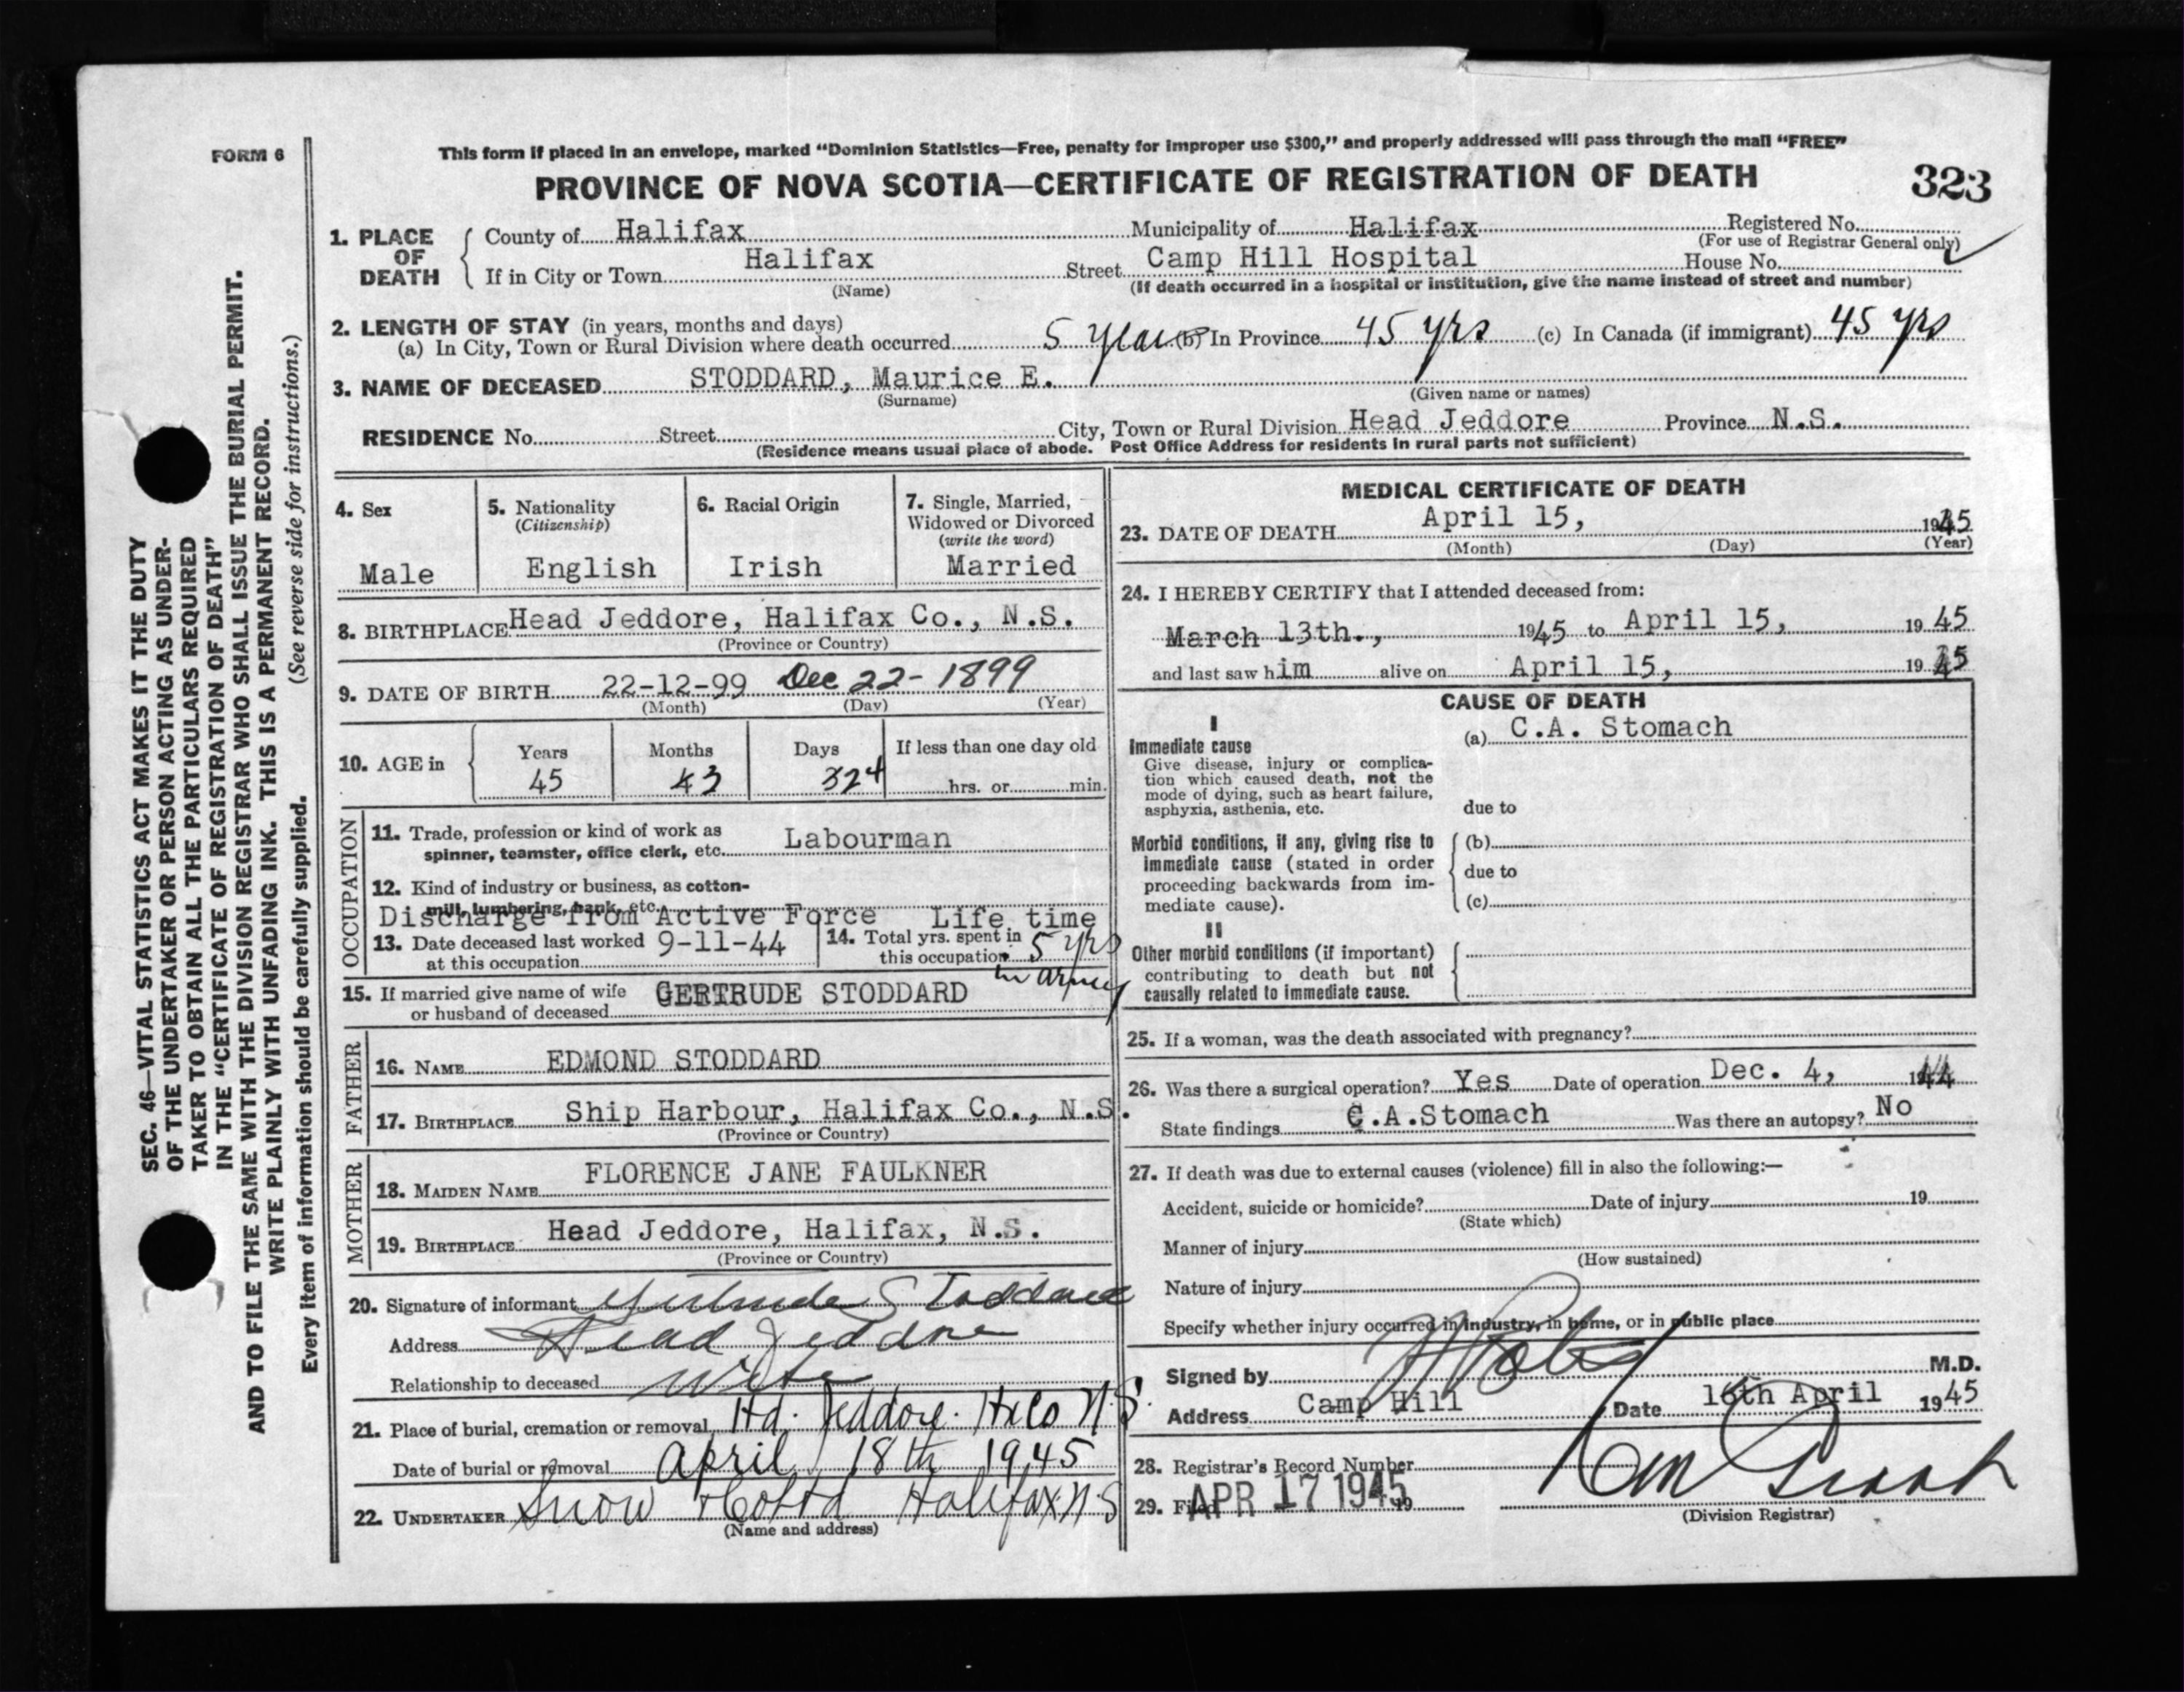 FORM 6
This form if placed in an envelope, marked “Dominion Statistics—Free, penalty for improper use $300,” and properly addressed will pass through the mail “FREE”
PROVINCE OF NOVA SCOTIA—CERTIFICATE OF REGISTRATION OF DEATH
323
1. PLACE OF DEATH
County of Halifax Municipality of Halifax Registered No.
(For use of Registrar General only)
If in City or Town Halifax Street Camp Hill Hospital House No.
(Name) (If death occurred in a hospital or institution, give the name instead of street and number)
2. LENGTH OF STAY (in years, months and days)
(a) In City, Town or Rural Division where death occurred 5 years (b) In Province 45 yrs (c) In Canada (if immigrant) 45 yrs
3. NAME OF DECEASED STODDARD, Maurice E.
(Surname) (Given name or names)
RESIDENCE No. Street City, Town or Rural Division Head Jeddore Province N.S.
(Residence means usual place of abode. Post Office Address for residents in rural parts not sufficient)
4. Sex
Male
5. Nationality
(Citizenship)
English
6. Racial Origin
Irish
7. Single, Married,
Widowed or Divorced
(write the word)
Married
8. BIRTHPLACE Head Jeddore, Halifax Co., N.S.
(Province or Country)
9. DATE OF BIRTH 22-12-99 Dec 22- 1899
(Month) (Day) (Year)
10. AGE in
Years Months Days If less than one day old
45 3 24 hrs. or min.
OCCUPATION
11. Trade, profession or kind of work as
spinner, teamster, office clerk, etc. Labourman
12. Kind of industry or business, as cotton-
mill, lumbering, bank, etc.
Discharge from Active Force Life time
13. Date deceased last worked 9-11-44
at this occupation
14. Total yrs. spent in
this occupation 5 yrs
in army
15. If married give name of wife GERTRUDE STODDARD
or husband of deceased
FATHER
16. NAME EDMOND STODDARD
17. BIRTHPLACE Ship Harbour, Halifax Co., N.S.
(Province or Country)
MOTHER
18. MAIDEN NAME FLORENCE JANE FAULKNER
19. BIRTHPLACE Head Jeddore, Halifax, N.S.
(Province or Country)
20. Signature of informant Gertrude Stoddard
Address Head Jeddore
Relationship to deceased Wife
21. Place of burial, cremation or removal Hd. Jeddore. Hx Co N.S.
Date of burial or removal April 18th 1945
22. UNDERTAKER Snow & Co Ltd Halifax N.S
(Name and address)
MEDICAL CERTIFICATE OF DEATH
23. DATE OF DEATH April 15, 1945
(Month) (Day) (Year)
24. I HEREBY CERTIFY that I attended deceased from:
March 13th., 1945 to April 15, 1945
and last saw him alive on April 15, 1945
CAUSE OF DEATH
I
Immediate cause
Give disease, injury or complica-
tion which caused death, not the
mode of dying, such as heart failure,
asphyxia, asthenia, etc.
(a) C.A. Stomach
due to
Morbid conditions, if any, giving rise to
immediate cause (stated in order
proceeding backwards from im-
mediate cause).
(b)
due to
(c)
II
Other morbid conditions (if important)
contributing to death but not
causally related to immediate cause.
25. If a woman, was the death associated with pregnancy?
26. Was there a surgical operation? Yes Date of operation Dec. 4, 1944
State findings C.A.Stomach Was there an autopsy? No
27. If death was due to external causes (violence) fill in also the following:—
Accident, suicide or homicide? Date of injury 19
(State which)
Manner of injury
(How sustained)
Nature of injury
Specify whether injury occurred in industry, in home, or in public place
Signed by M.D.
Address Camp Hill Date 16th April 1945
28. Registrar's Record Number
29. Filed APR 17 1945 19
(Division Registrar)
SEC. 46—VITAL STATISTICS ACT MAKES IT THE DUTY
OF THE UNDERTAKER OR PERSON ACTING AS UNDER-
TAKER TO OBTAIN ALL THE PARTICULARS REQUIRED
IN THE “CERTIFICATE OF REGISTRATION OF DEATH”
AND TO FILE THE SAME WITH THE DIVISION REGISTRAR WHO SHALL ISSUE THE BURIAL PERMIT.
WRITE PLAINLY WITH UNFADING INK. THIS IS A PERMANENT RECORD.
Every item of information should be carefully supplied. (See reverse side for instructions.)